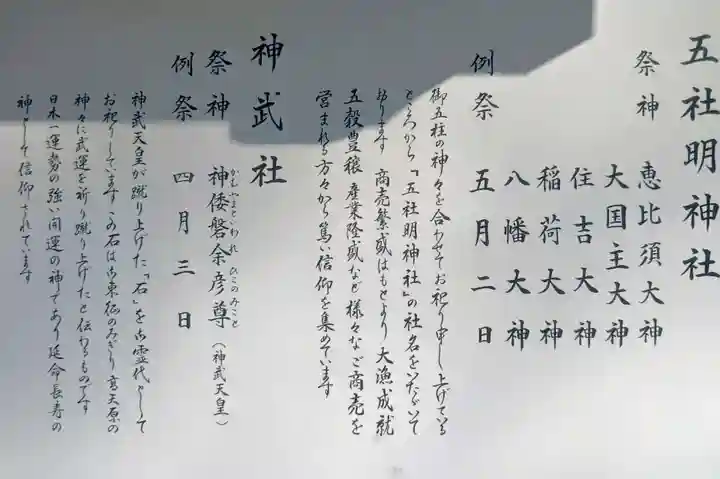 五社明神社
祭神 恵比須大神
大国主大神
住吉大神
稲荷大神
八幡大神
例祭 五月二日
御五柱の神々を合わせてお祀り申し上げている
ところから「五社明神社」の社名をいただいて
おります 商売繁盛はもとより 大漁成就
五穀豊穣 産業隆盛など 様々なご商売を
営まれる方々から篤い信仰を集めています
神武社
祭神 神倭磐余彦尊(神武天皇)
かむやまといわれ ひこのみこと
例祭 四月三日
神武天皇が蹴り上げた「石」を御霊代として
お祀りしています この石は御東征のみぎり 高天原の
神々に武運を祈り蹴り上げたと伝わるものです
日本一運勢の強い開運の神であり 延命長寿の
神として信仰されています